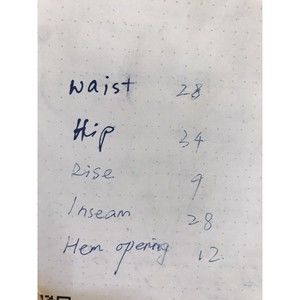 waist 28
Hip 34
Rise 9
Inseam 28
Hem opening 12